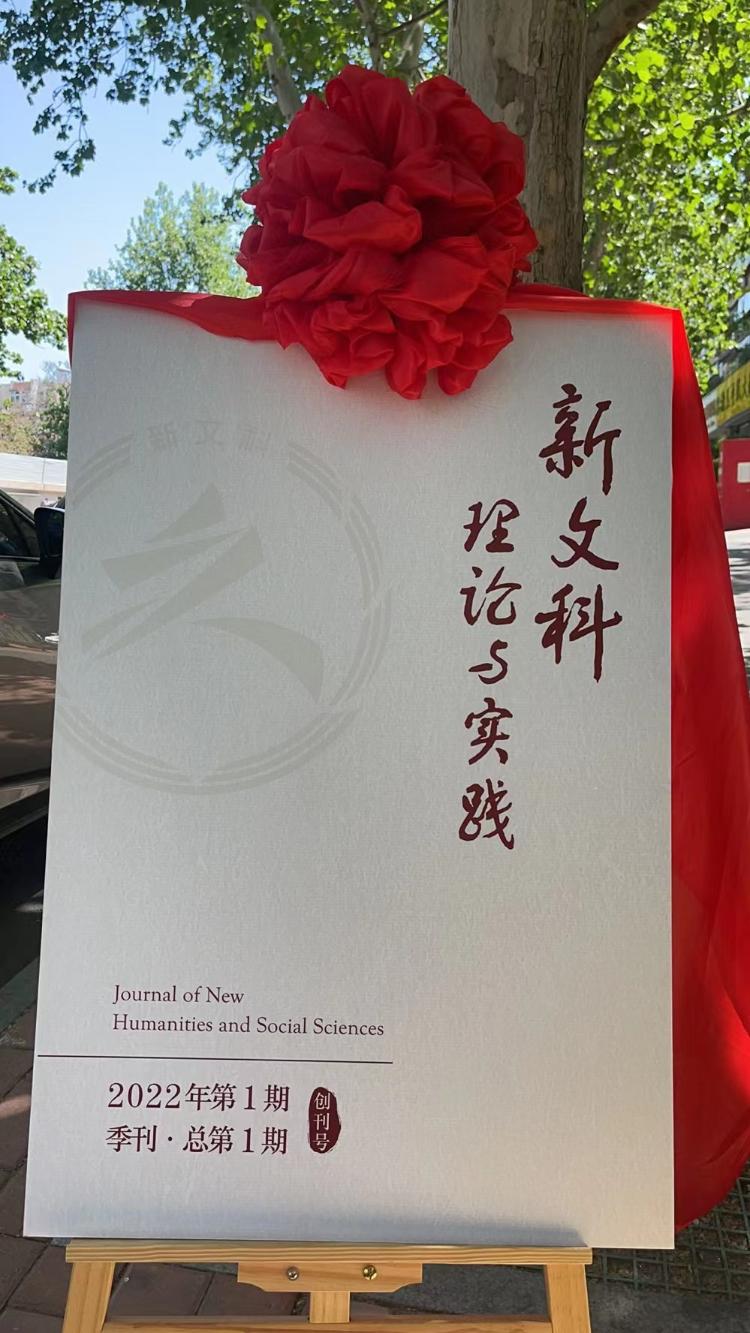 新文科
理论与实践
新文科
Journal of New
Humanities and Social Sciences
2022年第1期
季刊·总第1期
创刊号